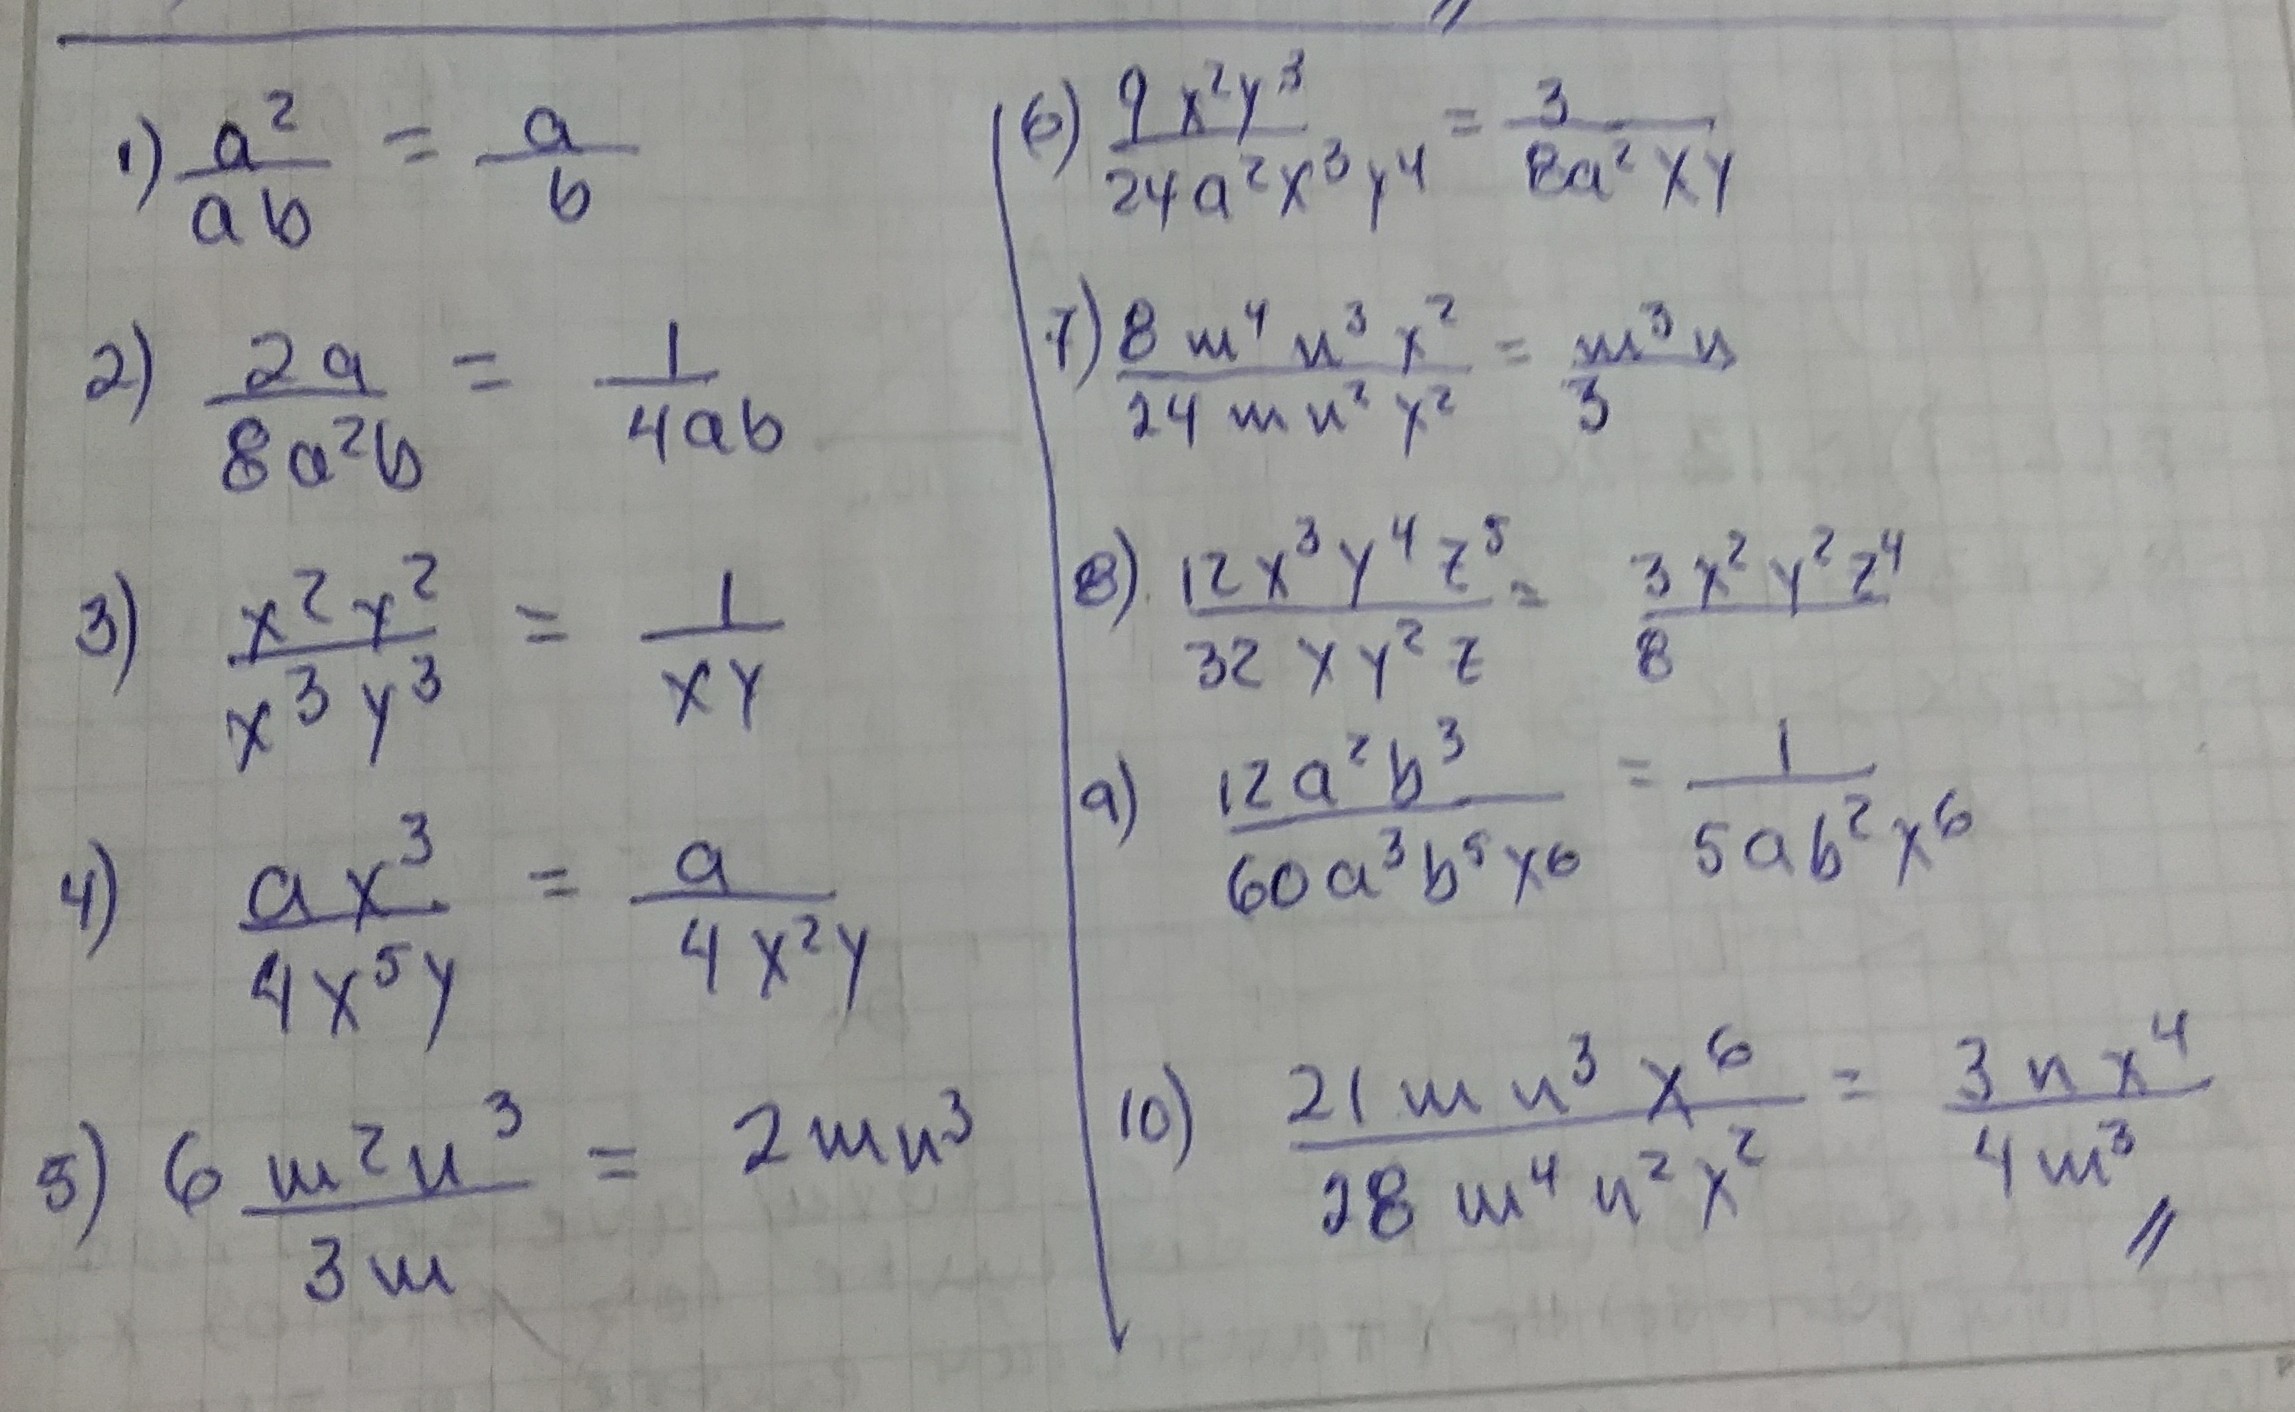 1) a²/ab = a/b
2) 2a/8a²b = 1/4ab
3) x²y²/x³y³ = 1/xy
4) ax³/4x⁵y = a/4x²y
5) 6 m²n³/3m = 2mn³
6) 9x²y³/24a²x³y⁴ = 3/8a²xy
7) 8m⁴n³x²/24mn²x² = m³n/3
8) 12x³y⁴z⁵/32xy²z = 3x²y²z⁴/8
9) 12a²b³/60a³b⁵x6 = 1/5ab²x⁶
10) 21mn³x⁶/28m⁴n²x² = 3nx⁴/4m³